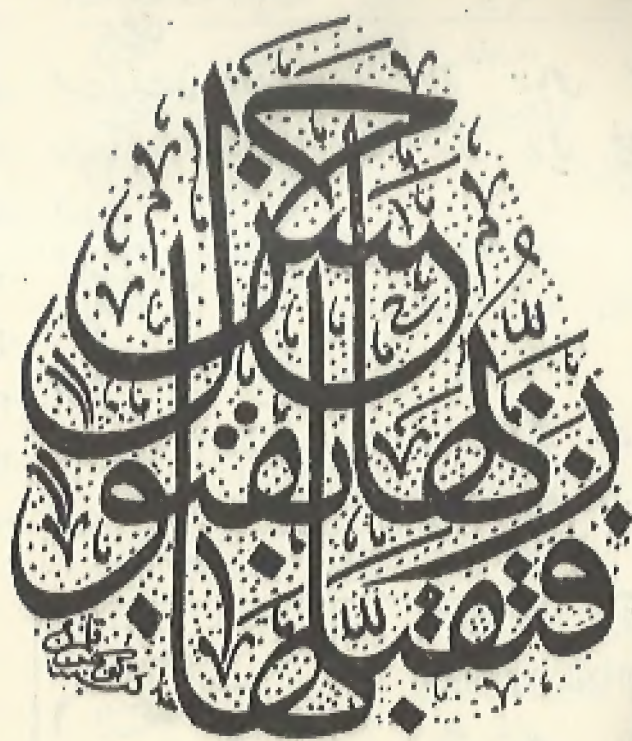 فتقبلها
ربها بقبول
حسن